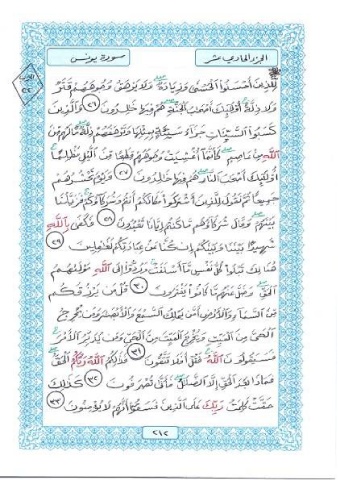 الجزء الحادي عشر
سورة يونس
لِّلَّذِينَ أَحْسَنُوا۟ ٱلْحُسْنَىٰ وَزِيَادَةٌ وَلَا يَرْهَقُ وُجُوهَهُمْ قَتَرٌ
وَلَا ذِلَّةٌ أُو۟لَٰٓئِكَ أَصْحَٰبُ ٱلْجَنَّةِ هُمْ فِيهَا خَٰلِدُونَ ٢٦ وَٱلَّذِينَ
كَسَبُوا۟ ٱلسَّيِّـَٔاتِ جَزَآءُ سَيِّئَةٍۭ بِمِثْلِهَا وَتَرْهَقُهُمْ ذِلَّةٌ مَّا لَهُم مِّنَ
ٱللَّهِ مِنْ عَاصِمٍ كَأَنَّمَآ أُغْشِيَتْ وُجُوهُهُمْ قِطَعًا مِّنَ ٱلَّيْلِ مُظْلِمًا
أُو۟لَٰٓئِكَ أَصْحَٰبُ ٱلنَّارِ هُمْ فِيهَا خَٰلِدُونَ ٢٧ وَيَوْمَ نَحْشُرُهُمْ
جَمِيعًا ثُمَّ نَقُولُ لِلَّذِينَ أَشْرَكُوا۟ مَكَانَكُمْ أَنتُمْ وَشُرَكَآؤُكُمْ فَزَيَّلْنَا
بَيْنَهُمْ وَقَالَ شُرَكَآؤُهُم مَّا كُنتُمْ إِيَّانَا تَعْبُدُونَ ٢٨ فَكَفَىٰ بِٱللَّهِ
شَهِيدًۢا بَيْنَنَا وَبَيْنَكُمْ إِن كُنَّا عَنْ عِبَادَتِكُمْ لَغَٰفِلِينَ ٢٩
هُنَالِكَ تَبْلُوا۟ كُلُّ نَفْسٍ مَّآ أَسْلَفَتْ وَرُدُّوٓا۟ إِلَى ٱللَّهِ مَوْلَىٰهُمُ
ٱلْحَقِّ وَضَلَّ عَنْهُم مَّا كَانُوا۟ يَفْتَرُونَ ٣٠ قُلْ مَن يَرْزُقُكُم
مِّنَ ٱلسَّمَآءِ وَٱلْأَرْضِ أَمَّن يَمْلِكُ ٱلسَّمْعَ وَٱلْأَبْصَٰرَ وَمَن يُخْرِجُ
ٱلْحَىَّ مِنَ ٱلْمَيِّتِ وَيُخْرِجُ ٱلْمَيِّتَ مِنَ ٱلْحَىِّ وَمَن يُدَبِّرُ ٱلْأَمْرَ
فَسَيَقُولُونَ ٱللَّهُ فَقُلْ أَفَلَا تَتَّقُونَ ٣١ فَذَٰلِكُمُ ٱللَّهُ رَبُّكُمُ ٱلْحَقُّ
فَمَاذَا بَعْدَ ٱلْحَقِّ إِلَّا ٱلضَّلَٰلُ فَأَنَّىٰ تُصْرَفُونَ ٣٢ كَذَٰلِكَ
حَقَّتْ كَلِمَتُ رَبِّكَ عَلَى ٱلَّذِينَ فَسَقُوٓا۟ أَنَّهُمْ لَا يُؤْمِنُونَ ٣٣
٢١٢